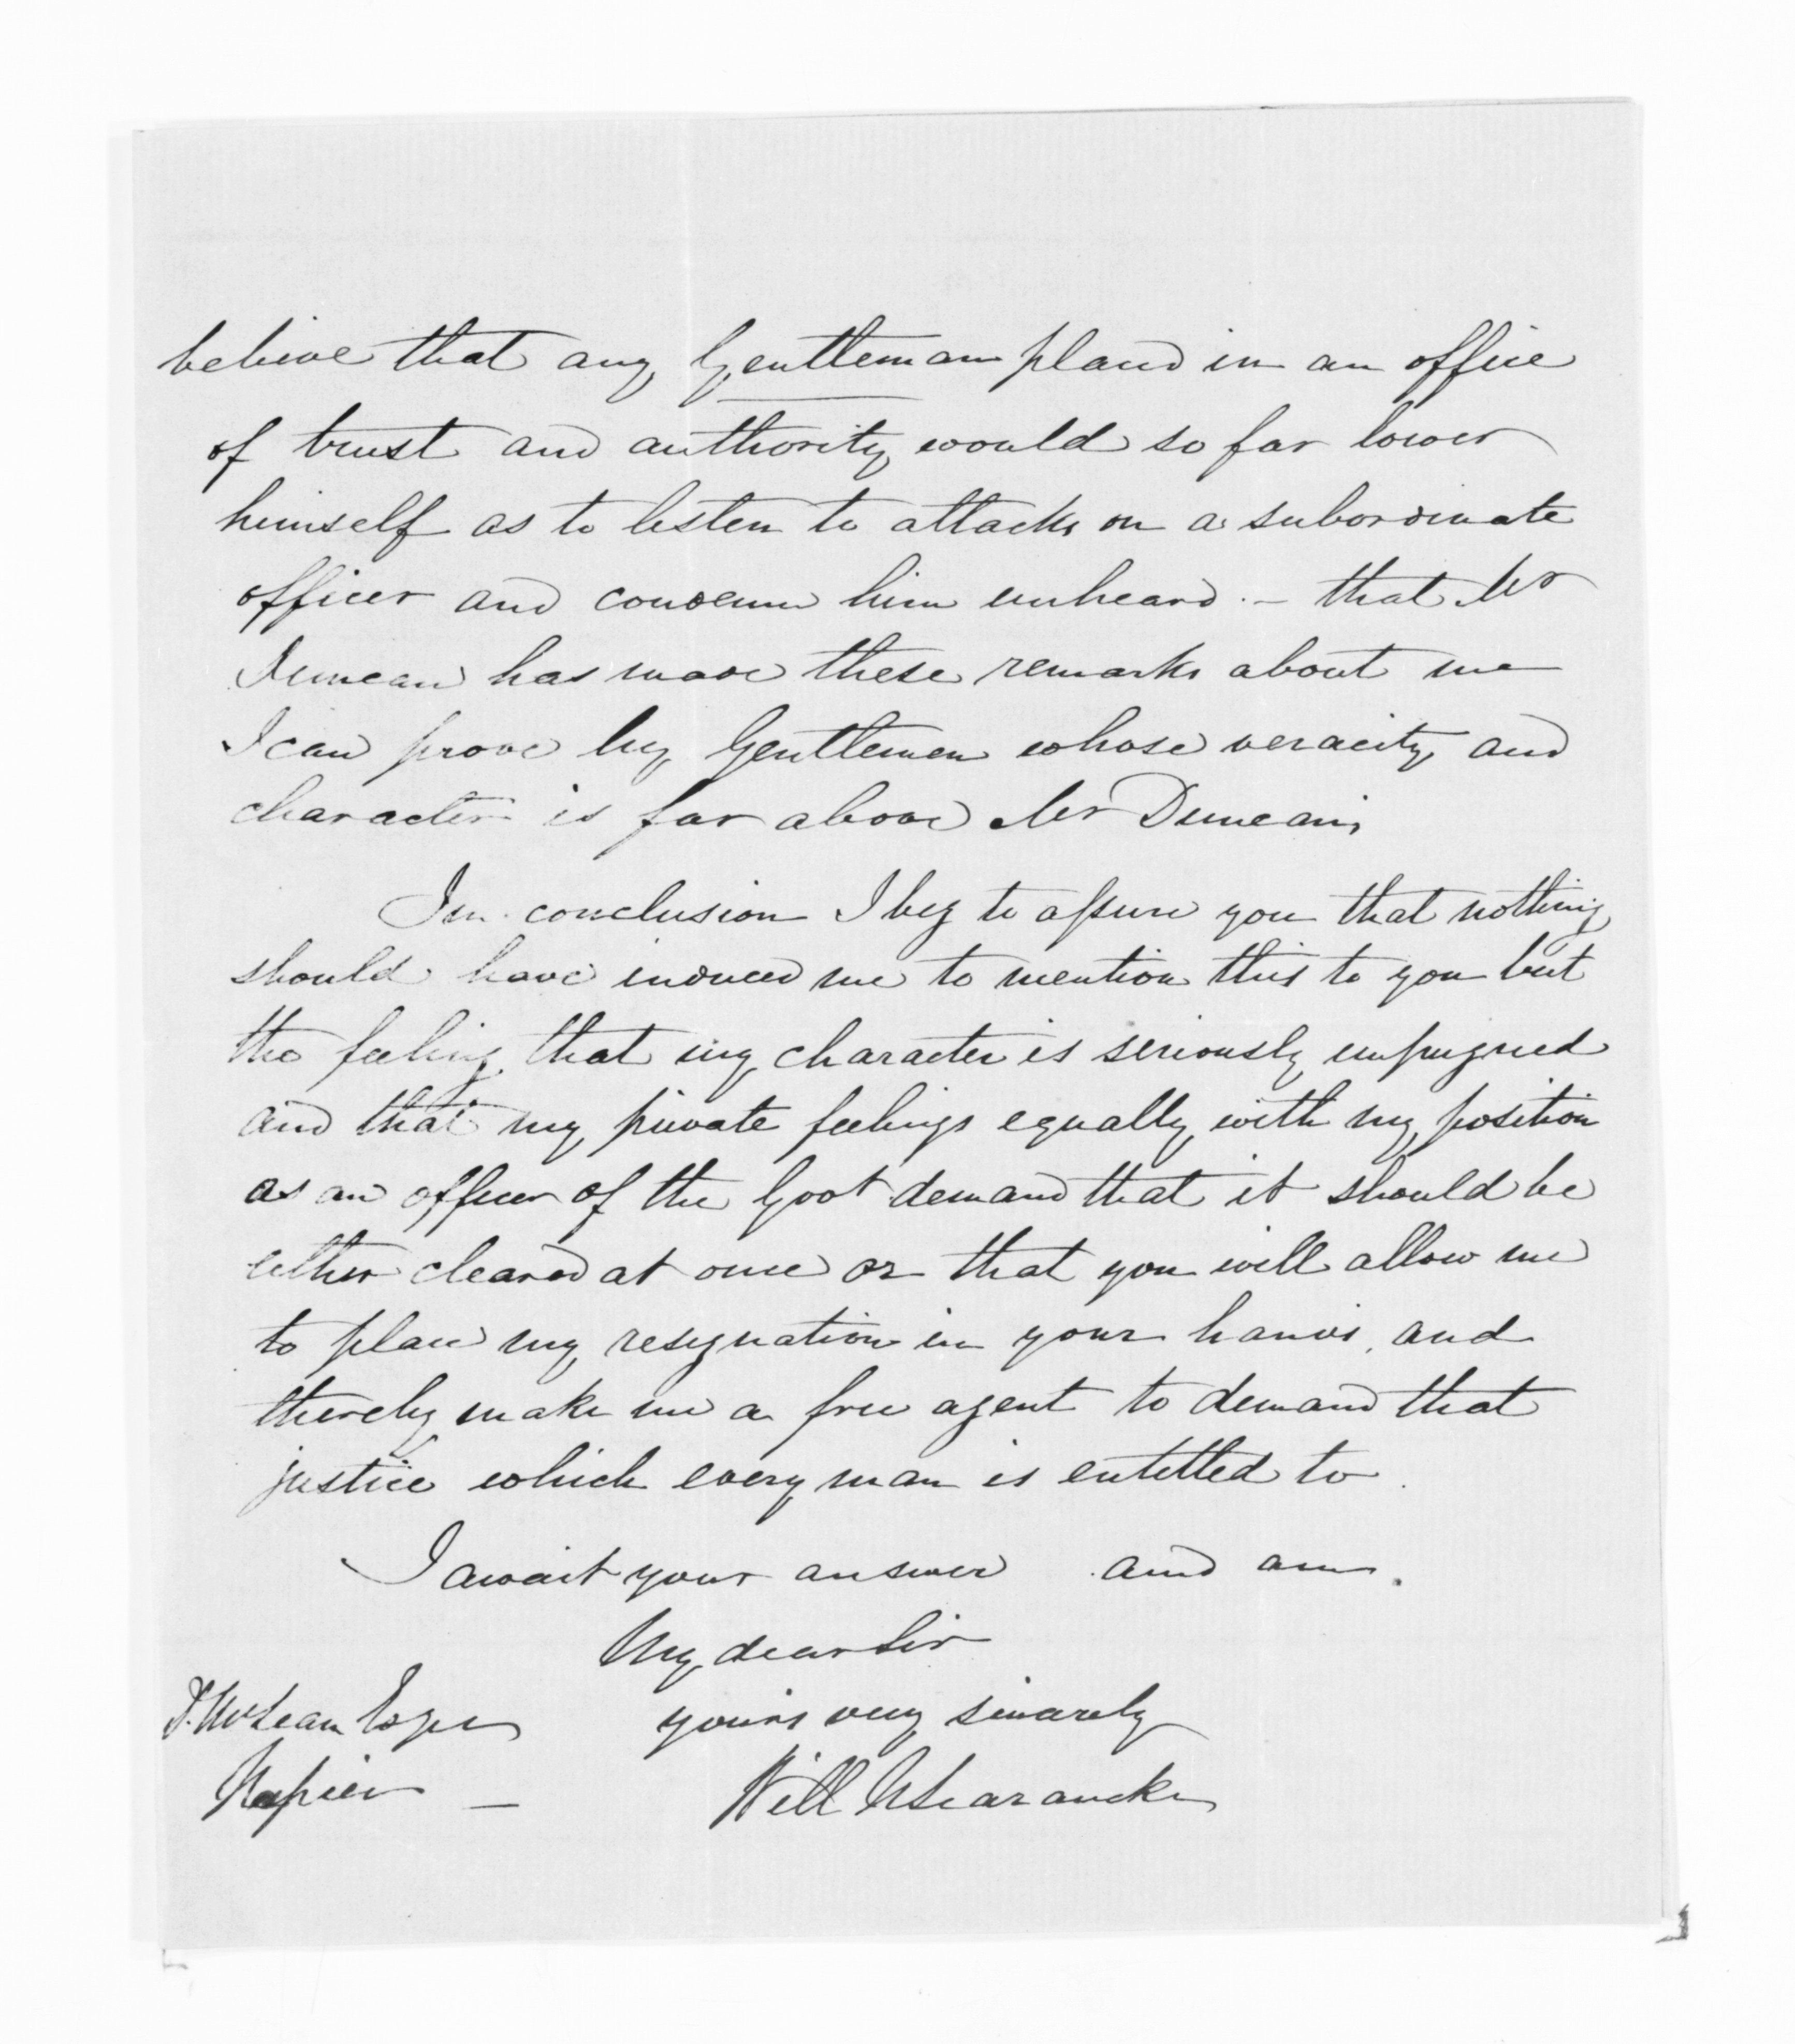 believe that any Gentleman placed in an office
of trust and authority would so far lower
himself as to listen to attacks on a subordinate
officer and condemn him unheard. – that Mr
Duncan has made these remarks about me
I can prove by Gentlemen whose veracity and
character is far above Mr Duncans
In conclusion I beg to assure you that nothing
should have induced me to mention this to you but
the feeling that my character is seriously impugned
and that my private feelings equally with my position
as an officer of the Govt demand that it should be
either cleared at once or that you will allow me
to place my resignation in your hands, and
thereby make me a free agent to demand that
justice which every man is entitled to.
I await your answer and am.
My dear Sir
yours very sincerely
D. McLean Esqre
Napier –
Will N Searancke